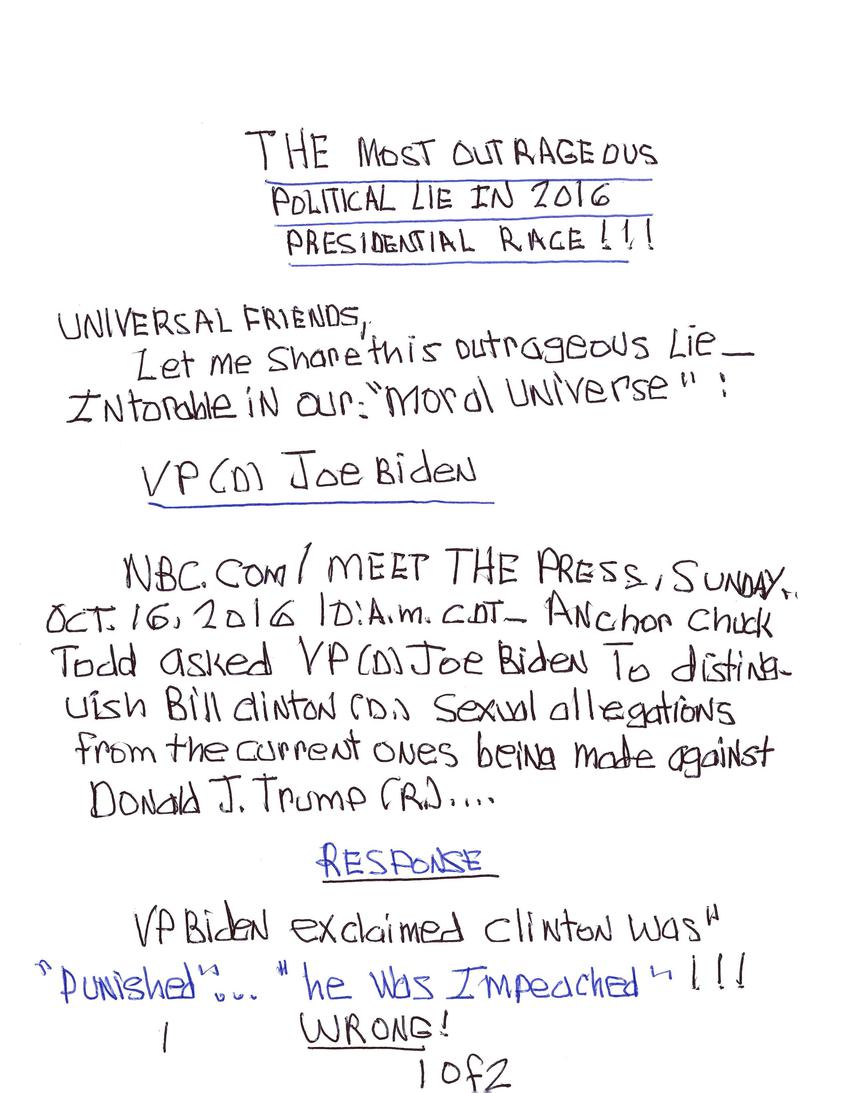 THE MOST OUTRAGEOUS
POLITICAL LIE IN 2016
PRESIDENTIAL RACE!!!
UNIVERSAL FRIENDS,
Let me share this outrageous Lie—
INtorable iN our: "Moral UNiverse" :
VP (D) Joe BideN
NBC.Com/ MEET THE PRESS, SUNDAY,
OCT. 16, 2016 10:A.m. CDT— ANchor Chuck
Todd asked VP (D) Joe BideN To disting-
uish Bill cliNtoN (D.) Sexual allegations
from the curreNt oNes beiNg made agaiNst
DoNald J. Trump (R.)....
RESPONSE
VP BideN exclaimed cliNtoN was "
"PuNished"... "he was Impeached" !!!
1 WRONG!
1 of 2